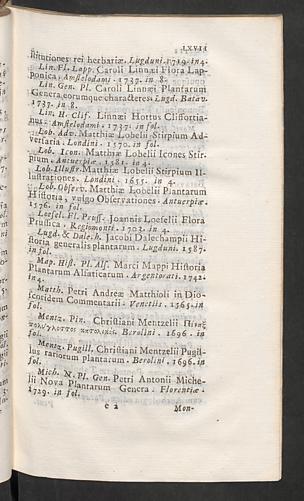 LXVII
stitutiones rei herbariæ. Lugduni. 1719. in 4.
Lin. Fl. Lapp. Caroli Linnæi Flora Lap-
ponica. Amstelodami. 1737. in 8.
Lin. Gen. Pl. Caroli Linnæi Plantarum
Genera eorumque characteres. Lugd. Batav.
1737. in 8.
Lin. H. Clif. Linnæi Hortus Cliffortia-
nus. Amstelodami. 1737. in fol.
Lob. Adv. Matthiæ Lobelii Stirpium Ad-
versaria. Londini. 1570. in fol.
Lob. Icon. Matthiæ Lobelii Icones Stir-
pium. Antuerpiæ. 1581. in 4.
Lob. Illustr. Matthiæ Lobelii Stirpium Il-
lustrationes. Londini. 1655. in 4.
Lob. Observ. Matthiæ Lobelii Plantarum
Historia, vulgo Observationes. Antuerpiæ.
1576. in fol.
Loesel. Fl. Pruss. Joannis Loeselii Flora
Prussica. Regiomonti. 1703. in 4.
Lugd. & Dalech. Jacobi Dalechampii Hi-
storia generalis plantarum. Lugduni. 1587.
in fol.
Map. Hist. Pl. Als. Marci Mappi Historia
Plantarum Alsaticarum. Argentorati. 1742.
in 4.
Matth. Petri Andreæ Matthioli in Dio-
scoridem Commentarii. Venetiis. 1565. in
fol.
Mentz. Pin. Christiani Mentzelii Πίναξ
Berolini. 1696. in
fol.
Mentz. Pugill. Christiani Mentzelii Pugil-
lus rariorum plantarum. Berolini. 1696. in
fol.
Mich. N. Pl. Gen. Petri Antonii Miche-
lii Nova Plantarum Genera. Florentiæ.
1729. in fol.
e 2 Mon-